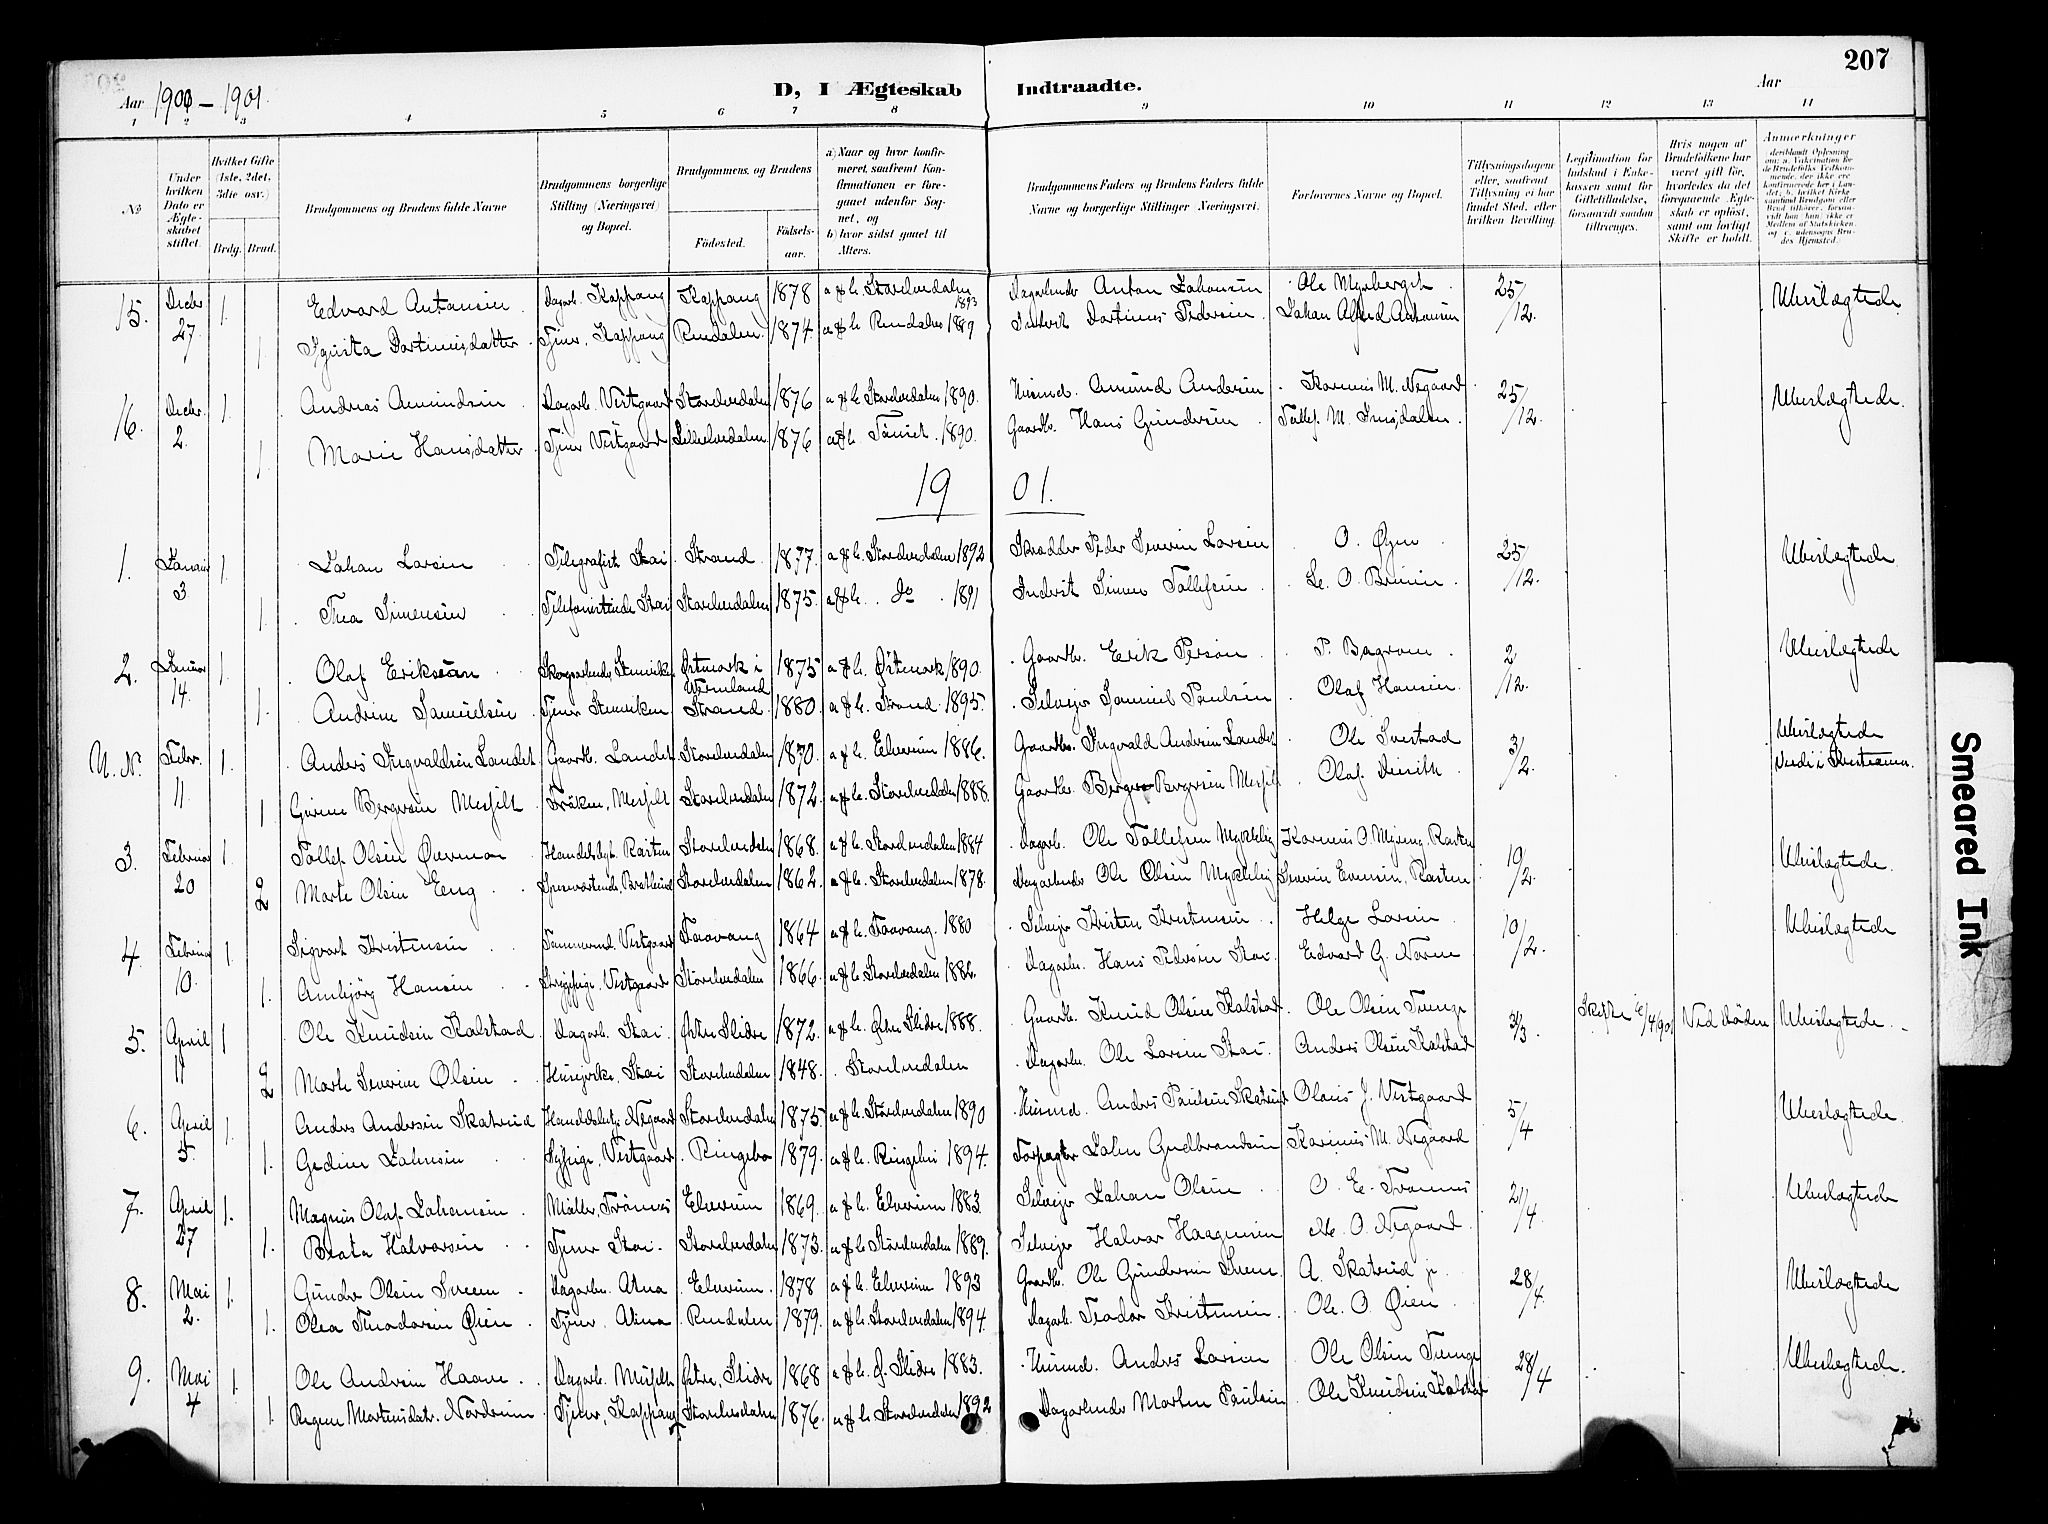 207
Aar 1900 – 1901.
D, I Ægteskab Indtraadte. Aar
1 2 3 4 5 6 7 8 9 10 11 12 13 14
No.
Under hvilken Dato er Ægteskabet stiftet.
Hvilket Gifte (1ste, 2det, 3die osv.)
Brdg. Brud.
Brudgommens og Brudens fulde Navne
Brudgommens borgerlige Stilling (Næringsvei) og Bopæl.
Brudgommens og Brudens
Födested. Födselsaar.
a) Naar og hvor konfirmeret, saafremt Konfirmationen er foregaaet udenfor Sognet, og
b) hvor sidst gaaet til Alters.
Brudgommens Faders og Brudens Faders fulde Navne og borgerlige Stillinger (Næringsvei.
Forlovernes Navne og Bopæl.
Tillysningsdagene eller, saafremt Tillysning ei har fundet Sted, efter hvilken Bevilling.
Legitimation for Indskud i Enkekassen samt for Giftetilladelse, forsaavidt saadan tiltrænges.
Hvis nogen af Brudefolkene har været gift för, hvorledes da det foregaaende Ægteskab er oplöst, samt om lovligt Skifte er holdt.
Anmærkninger
15. Decbr 27. 1. Edvard Antonsen Dagarb. Koppang Koppang 1878 a & b. Storelvedalen 1893 Dagarbeider Anton Johansen Ole Myrbergsh 25/12. Ubeslægtede
1. Agusta Dortinusdatter Tjener, Koppang Rendalen 1874. a & b Rendalen 1889 Inderst Dortinus Pedersen Johan Alfred Antonsen
16. Decbr. 2. 1. Andreas Amundsen Dagarb. Vestgaard Storelvedalen 1876 a & b Storelvedalen 1890. Husmd. Amund Andersen Karenus M. Negaard 25/12. Ubeslægtede.
1. Marie Hansdatter Tjener Vestgaard Lilleelvedalen 1876 a & b. Tönset. 1890. Gaardb. Hans Gundersen Tollef M. Imsdalen
19 01.
1. Januar 3 1. Johan Larsen Telegrafist Stai Strand 1877. a & b. Storelvedalen 1892 Skrædder Peder Severin Larsen O. Øyen 25/12. Ubeslægtede
1. Thea Simensen Telefonistinde Stai Storelvedalen 1875. a & b. do 1891 Inderst Simen Tollefsen Le. O. Bruun
2. Januar 14. 1. Olaf Eriksson Skogsarbeider Stenviken Østmark i Vermland 1875 a & b. Østmark 1890. Gaardb. Erik Person P. Bagrom 2/12. Ubeslægtede
1. Andrine Samuelsen Tjener Stenviken Strand 1880. a & b. Strand. 1895. Selveier Samuel Paulsen Olaf Hansen
U. N. Febr. 11 1. Anders Ingvaldsen Landet Gaardb. Landet Storelvedalen 1870. a & b. Elverum 1886. Gaardb. Ingvald Andersen Landet Ole Sverstad 3/2. Ubeslægtede
1 Gurine Bergersen Messelt Fröken, Messelt Storelvedalen 1872. a & b. Storelvedalen 1888. Gaardb. Berger Bergersen Messelt Olaf
3. Februar 20 1. Tollef Olsen Øvermoe Handelsbet. Rasten Storelvedalen 1868. a & b. Storelvedalen 1884 Dagarb. Ole Tollefsen Myklebÿ Karenus O. Myreng, Rasten 10/2. Ubeslægtede.
2 Marte Olsen Eeng Storelvedalen 1862. a & b. Storelvedalen 1878. Dagarbeider Ole Olsen Myklebÿ Severin Evensen, Rasten
4. Februar 10. 1 Sigvart Kristensen Tömmermd. Vestgaard Faavang 1864 a & b. Faavang. 1880 Selveier Kristen Kristensen Helge Larsen 10/2. Ubeslægtede
1. Ambjörg Hansen Strygepige, Vestgaard Storelvedalen 1866. a & b. Storelvedalen 1882. Dagarb. Hans Pedersen Stai. Edvard G. Norem
5. April 11 1 Ole Knudsen Kalstad Dagarb. Stai Østre Slidre 1872. a & b. Østre Slidre 1888. Gaardb. Knud Olsen Kalstad Ole Olsen Tunge 31/3. Skifte 10/4 1901 Ved döden Ubeslægtede.
2 Marte Severine Olsen Huseierske, Stai Storelvedalen 1848. Storelvedalen Dagarb. Ole Larsen Stai. Anders Olsen Kalstad
6. April 5. 1. Anders Andersen Skatrud Handelsbetj. Negaard Storelvedalen 1875 a & b. Storelvedalen 1890 Husmd. Anders Paulsen Skatrud Olaus J. Vestgaard 5/4 Ubeslægtede
1. Gedine Johnsen Sypige, Vestgaard Ringebo 1879. a & b. Ringebu 1894. Forpagter John Gudbrandsen Karenus M. Negaard
7. April 27 1. Magnus Olaf Johansen Möller, Trönnes Elverum 1869. a & b. Elverum 1883. Selveier Johan Olsen O. E. Trönnes 21/4. Ubeslægtede
1. Beata Halvorsen Tjener Stai. Storelvedalen 1873. a & b. Storelvedalen 1889. Selveier Halvor Haagensen M. O. Negaard
8. Mai 2. 1. Gunder Olsen Sveen Dagarb. Atna Elverum 1878 a & b. Elverum 1893 Gaardb. Ole Gundersen Sveen A. Skatrud jr. 28/4. Ubeslægtede
1. Olea Theodorsen Øien Tjener, Atna Rendalen 1879. a & b. Storelvedalen 1894. Dagarb. Teodor Kristensen Ole. O. Øien
9. Mai 4 1. Ole Andersen Haave Dagarb. Messelt Østre, Slidre 1868 a & b. Ø. Slidre 1883. Husmd. Anders Larsen Ole Olsen Tunge 28/4 Ubeslægtede.
1. Regine Mortensdatr. Nordrum Tjener, Koppang Storelvedalen 1876. a & b Storelvedalen 1892 Dagarbeider Morten Paulsen Ole Knudsen Kalstad
Smeared Ink